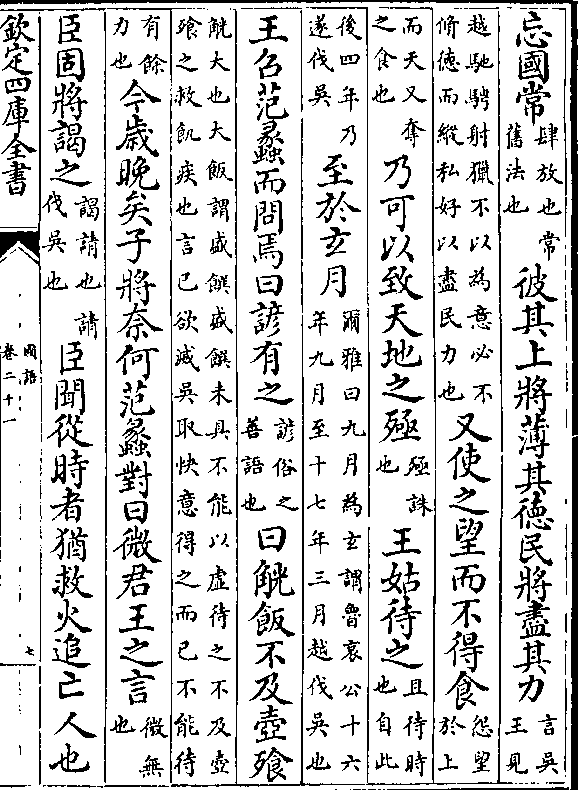 忘國常肆放也常舊法也彼其上將薄其徳民將盡其力言吳王見
越馳騁射獵不以為意必不脩徳而縱私好以盡民力也又使之望而不得食怨望於上
而天又奪之食也乃可以致天地之殛殛誅也王姑待之且待時也自此
後四年乃遂伐吳至於玄月爾雅曰九月為玄謂魯哀公十六年九月至十七年三月越伐吳也
王召范蠡而問焉曰諺有之諺俗之善語也曰觥飯不及壺飱
觥大也大飯謂盛饌盛饌未具不能以虛待之不及壺飱之救飢疾也言己欲滅吳取快意得之而已不能待
有餘力也今歲晚矣子將奈何范蠡對曰微君王之言微無也
臣固將謁之謁請也請伐吳也臣聞從時者猶救火追亡人也
欽定四庫全書
國語
卷二十一
七